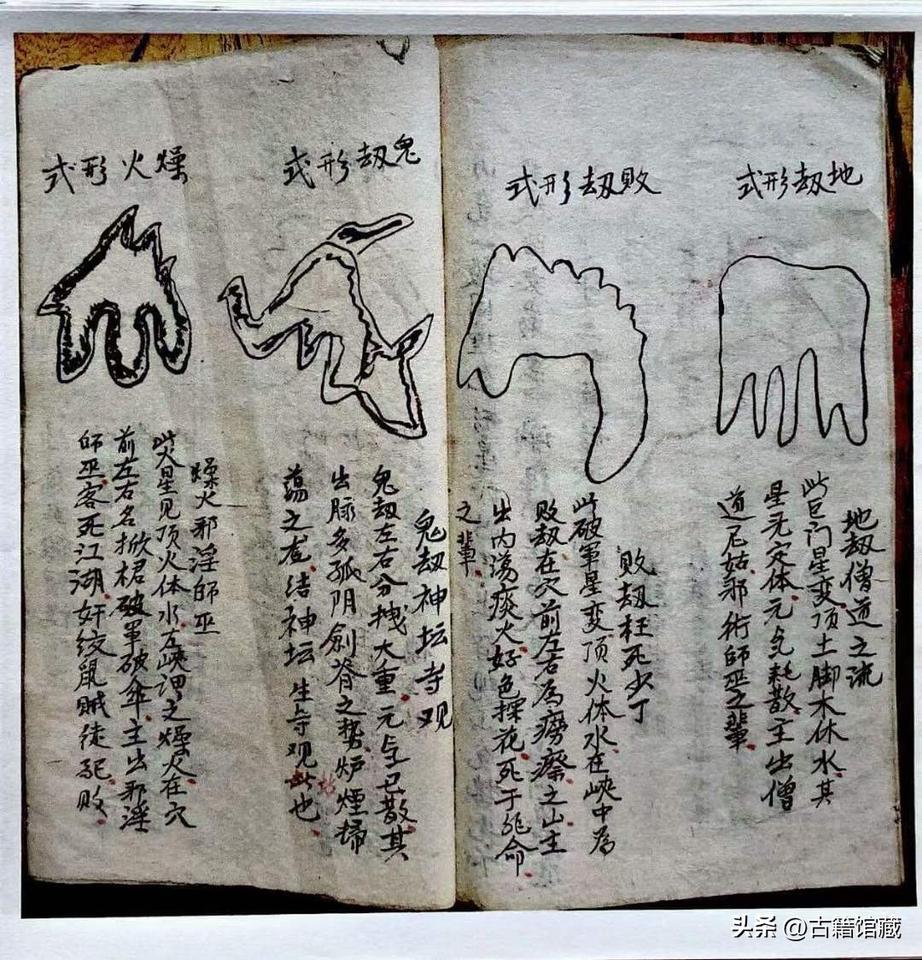 地劫形式
地劫僧道之流
此巨门星变顶土脚木体水其
星无定体元气耗散主出僧
道尼姑邪術師巫之輩
败劫形式
败劫枉死少丁
此破军星变顶火体水在峡中為
败劫在穴前左右為癆瘵之山主
出内荡痰火好色採花死于非命
之輩
鬼劫形式
鬼劫神坛寺观
鬼劫左右分拽大重元气已散其
出脉多孤阴劍脊之势炉煙掃
蕩之龙结神坛生寺观此也
燥火形式
燥火邪淫師巫
此火星见顶火体水在峡谓之燥火在穴
前左右名掀裙破軍破傘主出邪淫
師巫客死江湖奸绞鼠贼徒配败
头条 @古籍馆藏